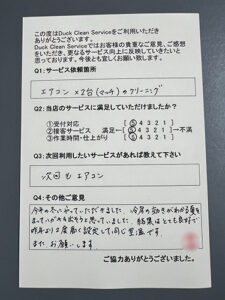 この度はDuck Clean Serviceをご利用いただき
ありがとうございます。
Duck Clean Serviceではお客様の貴重なご意見、ご感想
をいただき、更なるサービス向上に反映していきたいと
思っております。今後とも宜しくお願い致します。
Q1:サービス依頼箇所
エアコン×2台(マッチ)のクリーニング
Q2:当店のサービスに満足していただけましたか?
①受付対応 5 4 3 2 1
②接客サービス 満足← 5 4 3 2 1 →不満
③作業時間・仕上がり 5 4 3 2 1
Q3:次回利用したいサービスがあれば教えて下さい
次回もエアコン
Q4:その他ご意見
今年の冬にやっていただきました。今年の効きがわかる夏を
まってからお願いしようと思っていました。結果はとても良好で
昨年より2度高く設定して同じ室温です。
また、お願いします
ご協力ありがとうございました。